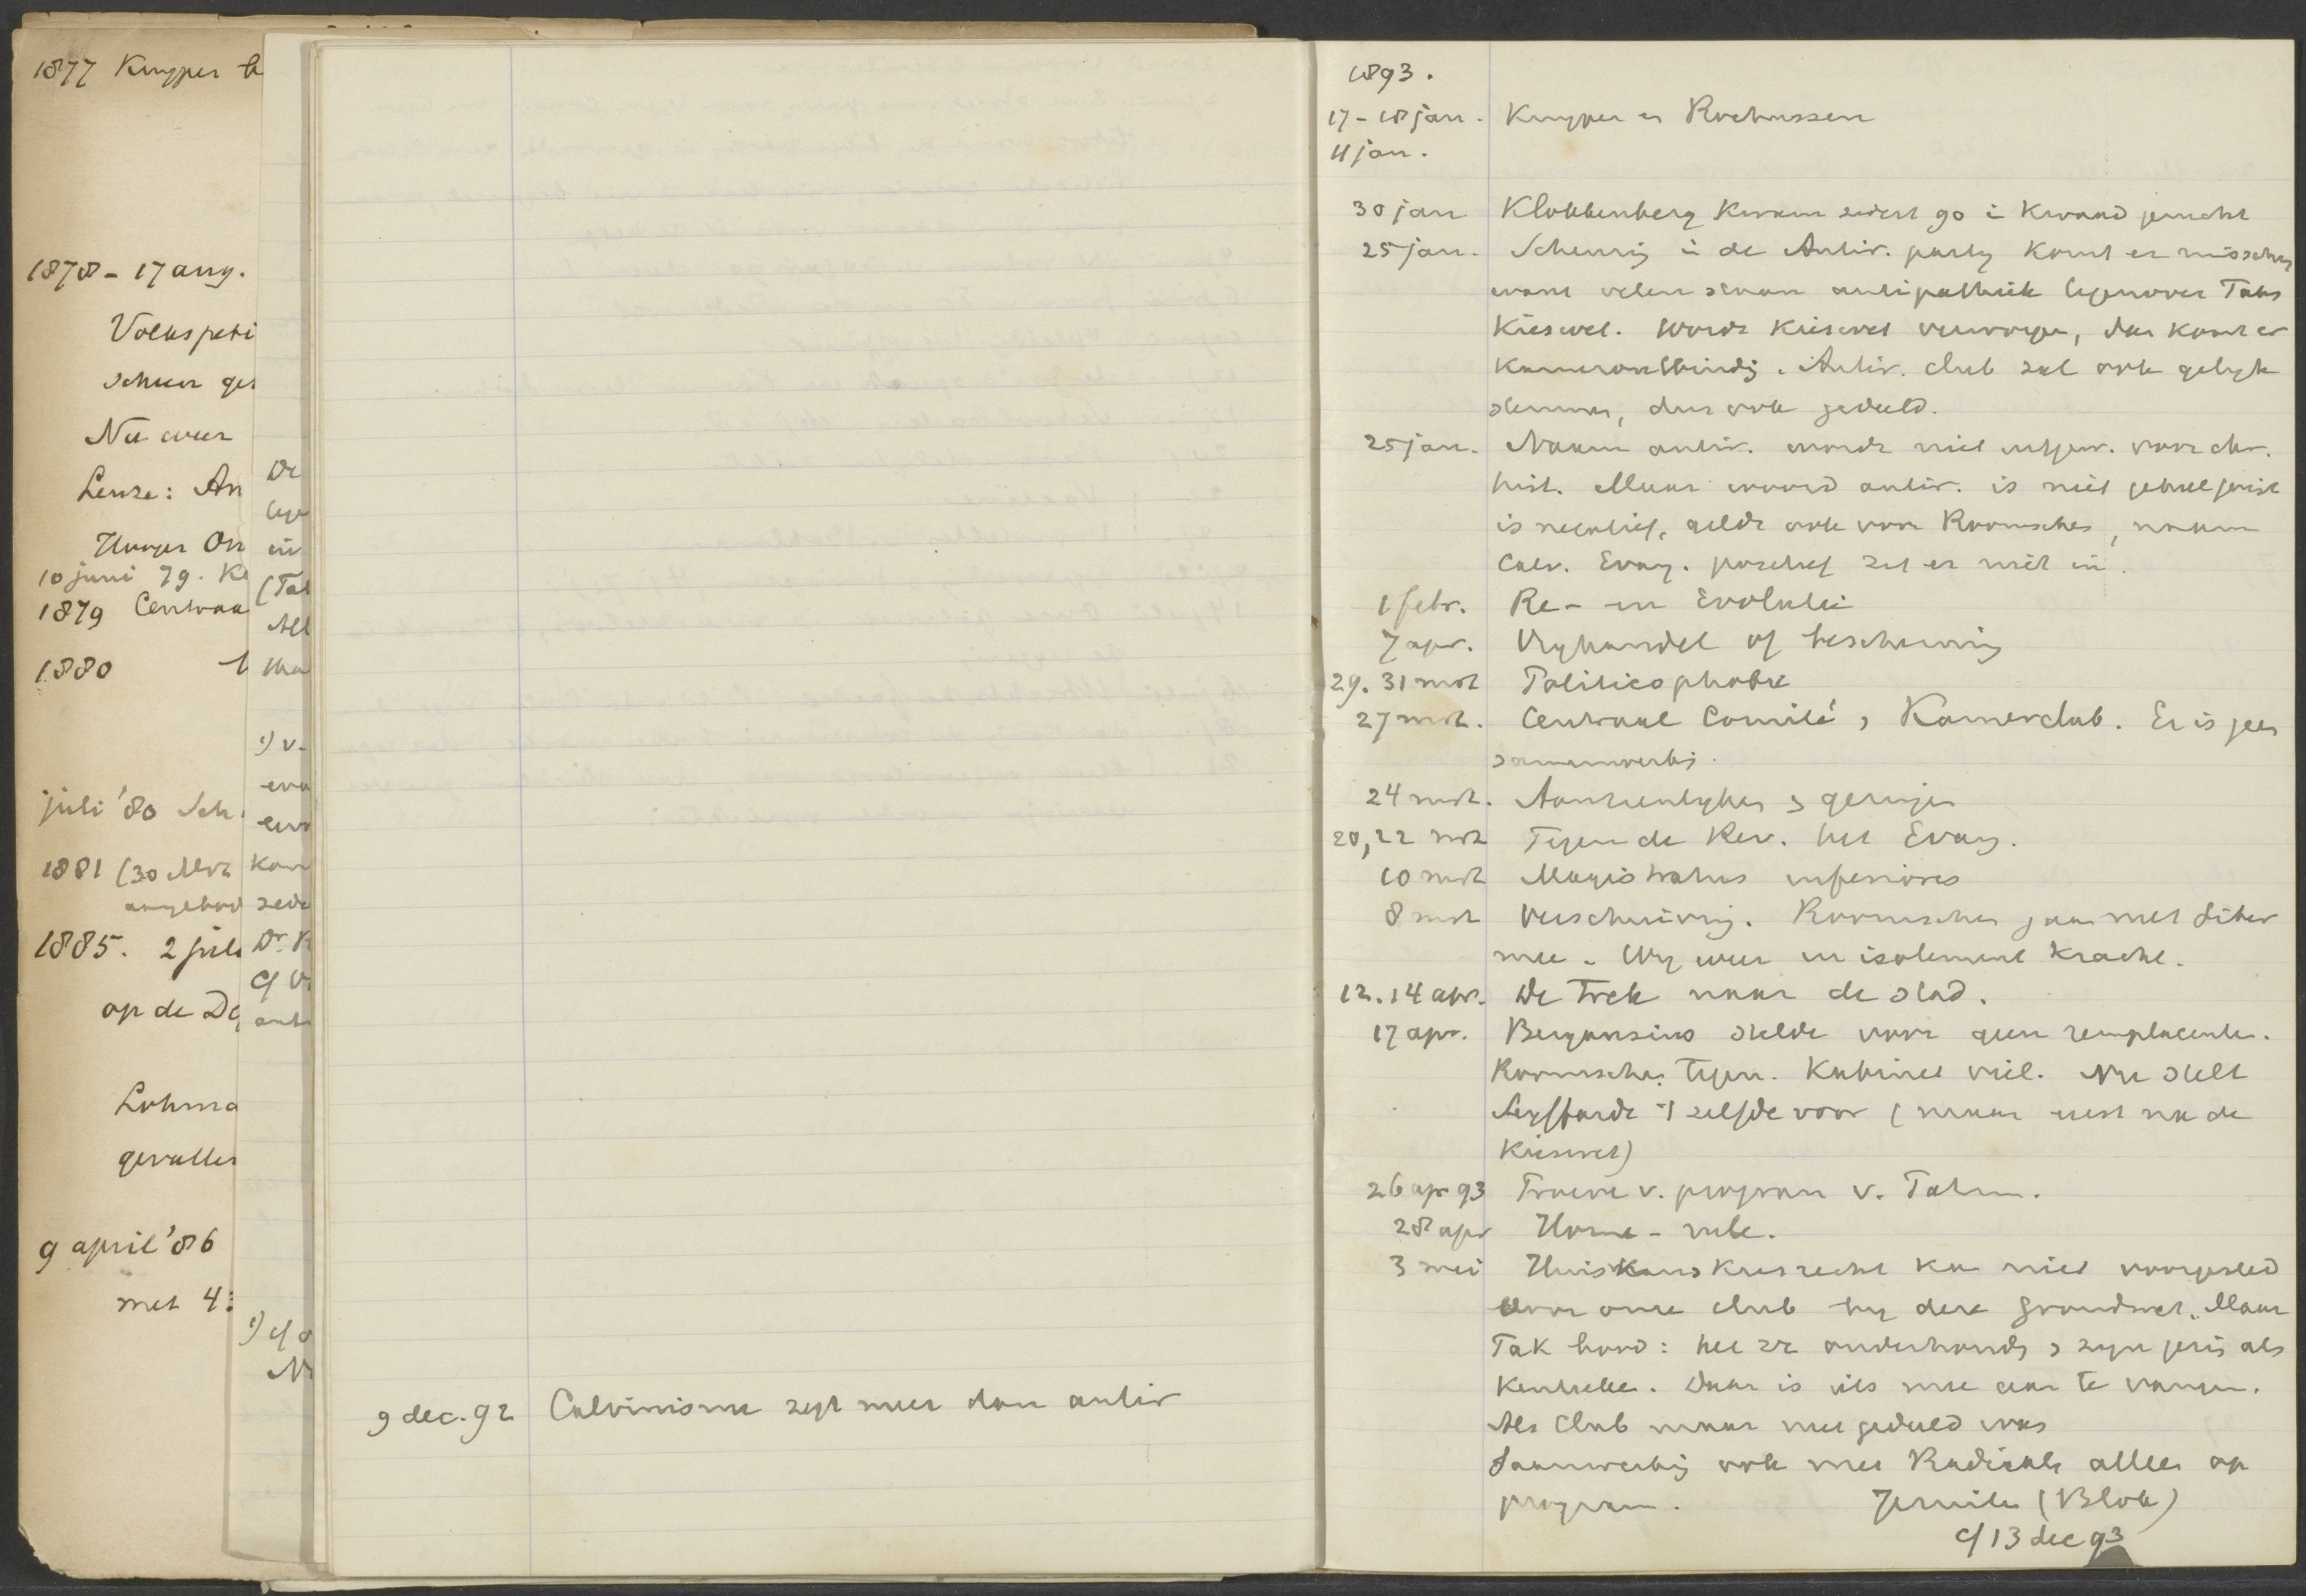 1877 Kuyper
1878 - 17 aug.
Volkspeti
Nu weer
Leuze: An
Hooger On
10 juni 79. Ke
1879 Centraa
1880 't
juli '80 Sch.
1881 (30 Mrt
aangebod
1885. 2 juli
op de De
Lohma
gevallen
9 april '86
met 4:
De
tege
in
(Tal
All
Ma
1) v.
eva
kom
zede
Dr. K
cf V.
anti
1) cf
9 dec. 92 Calvinisme zegt meer dan antir
1893.
17-18 jan. Kuyper en Rochussen
11 jan.
30 jan Klobbenberg kwam sedert 90 in kwaad gerucht
25 jan. Scheuring in de Antir. party komt er misschien
want velen staan antipathiek tegenover Taks
Kieswet. Wordt Kieswet verworpen, dan komt er
Kamerontbinding. Antir. club zal ook gelyk
stemmen, dus ook geduld.
25 jan. Naam antir. wordt niet voor chr.
hist. Maar woord antir. is niet geheel juist
is negatief, geldt ook voor Roomschen, naam
Calv. Evang. positief zit er niet in.
1 febr. Re- en Evolutie
7 apr. Vryhandel of bescherming
29. 31 mrt Politicophobie
27 mrt. Centraal Comité, Kamerclub. Er is geen
samenwerking.
24 mrt. Aanzienlyken en geringen
20, 22 mrt Tegen de Rev. het Evang.
10 mrt Magistratus inferiores
8 mrt Verschuiving. Roomschen gaan met liber
mee. Wy weer in isolement kracht.
12. 14 apr. De trek naar de stad.
17 apr. Bergansius stelde voor geen remplacanten.
Roomschen tegen. Kabinet viel. Nu stelt
Seyffardt 't zelfde voor (maar eerst na de
Kieswet)
26 apr 93 Tracé v. program v. Takm.
28 apr Home-rule.
3 mei Huismans kiesrecht kan niet voorgesteld
door onze club by deze grondwet. Maar
Tak bood: het zich onderhouden en zyn gezin als
kenteeken. Daar is iets mee aan te vangen.
Als Club maar met geduld was
Samenwerking ook met Radicale alleen op
program. (Blok)
cf 13 dec 93